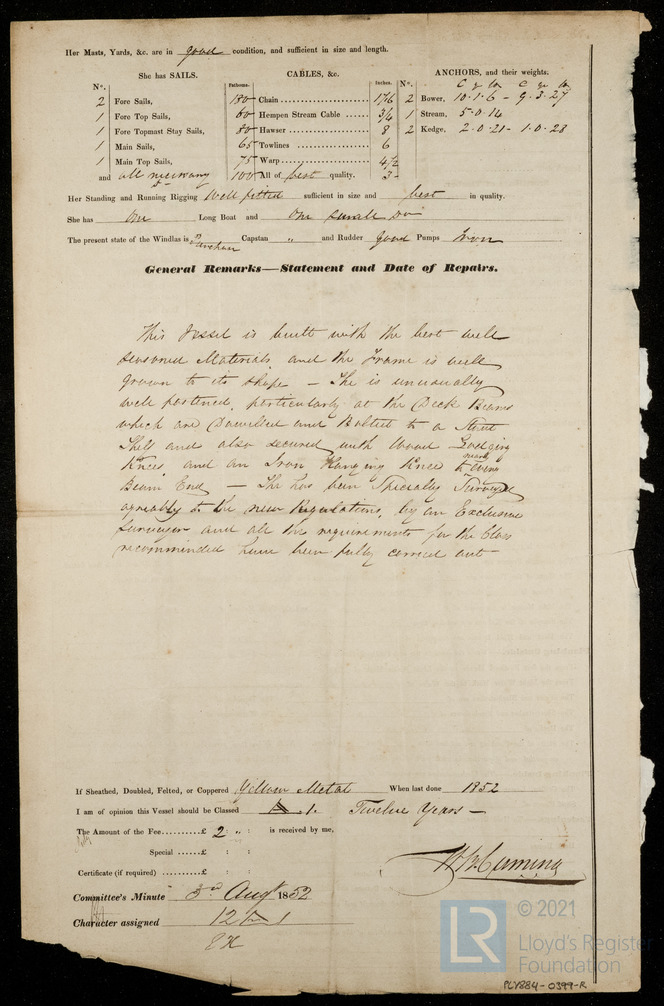 Her Masts, Yards, &c. are in good condition, and sufficient in size and length.
She has SAILS. CABLES, &c. ANCHORS, and their weights.
N°. Fathoms. Inches. N°. C q lb C q lb
2 Fore Sails, 180 Chain 1 1/16 2 Bower, 10.1.6 - 9.3.27
1 Fore Top Sails, 60 Hempen Stream Cable 1 Stream, 5.0.14
1 Fore Topmast Stay Sails, 80 Hawser 8 2 Kedge, 2.0.21 - 1.0.23
1 Main Sails, 65 Towlines 6
1 Main Top Sails, 75 Warp 4 1/2
and all necessary 100 All of best quality. 3 -
Her Standing and Running Rigging Well fitted sufficient in size and best in quality.
She has One Long Boat and One small Do
The present state of the Windlas is Capstan " and Rudder good Pumps Iron
General Remarks—Statement and Date of Repairs.
This Vessel is built with the best well
seasoned Materials and the Frame is well
grown to its shape — She is unusually
well fastened, particularly at the Deck Beams
which are Dowelled and Bolted to a Stout
Shelf and also secured with Wood Lodging
Knees, and an Iron Hanging Knee to nearly every
Beam End — She has been Specially Surveyed
agreeably to the new Regulations, by an Exclusive
Surveyor and all the requirements for the Class
recommended have been fully carried out
If Sheathed, Doubled, Felted, or Coppered Yellow Metal When last done 1852
I am of opinion this Vessel should be Classed A 1. Twelve Years —
The Amount of the Fee £ 2 : " : is received by me,
Special £ : :
Certificate (if required) £ : :
Committee's Minute 3rd Augt 1852
Character assigned 12 A 1
© 2021
LR
Lloyd's Register
Foundation
PLY884-0399-R